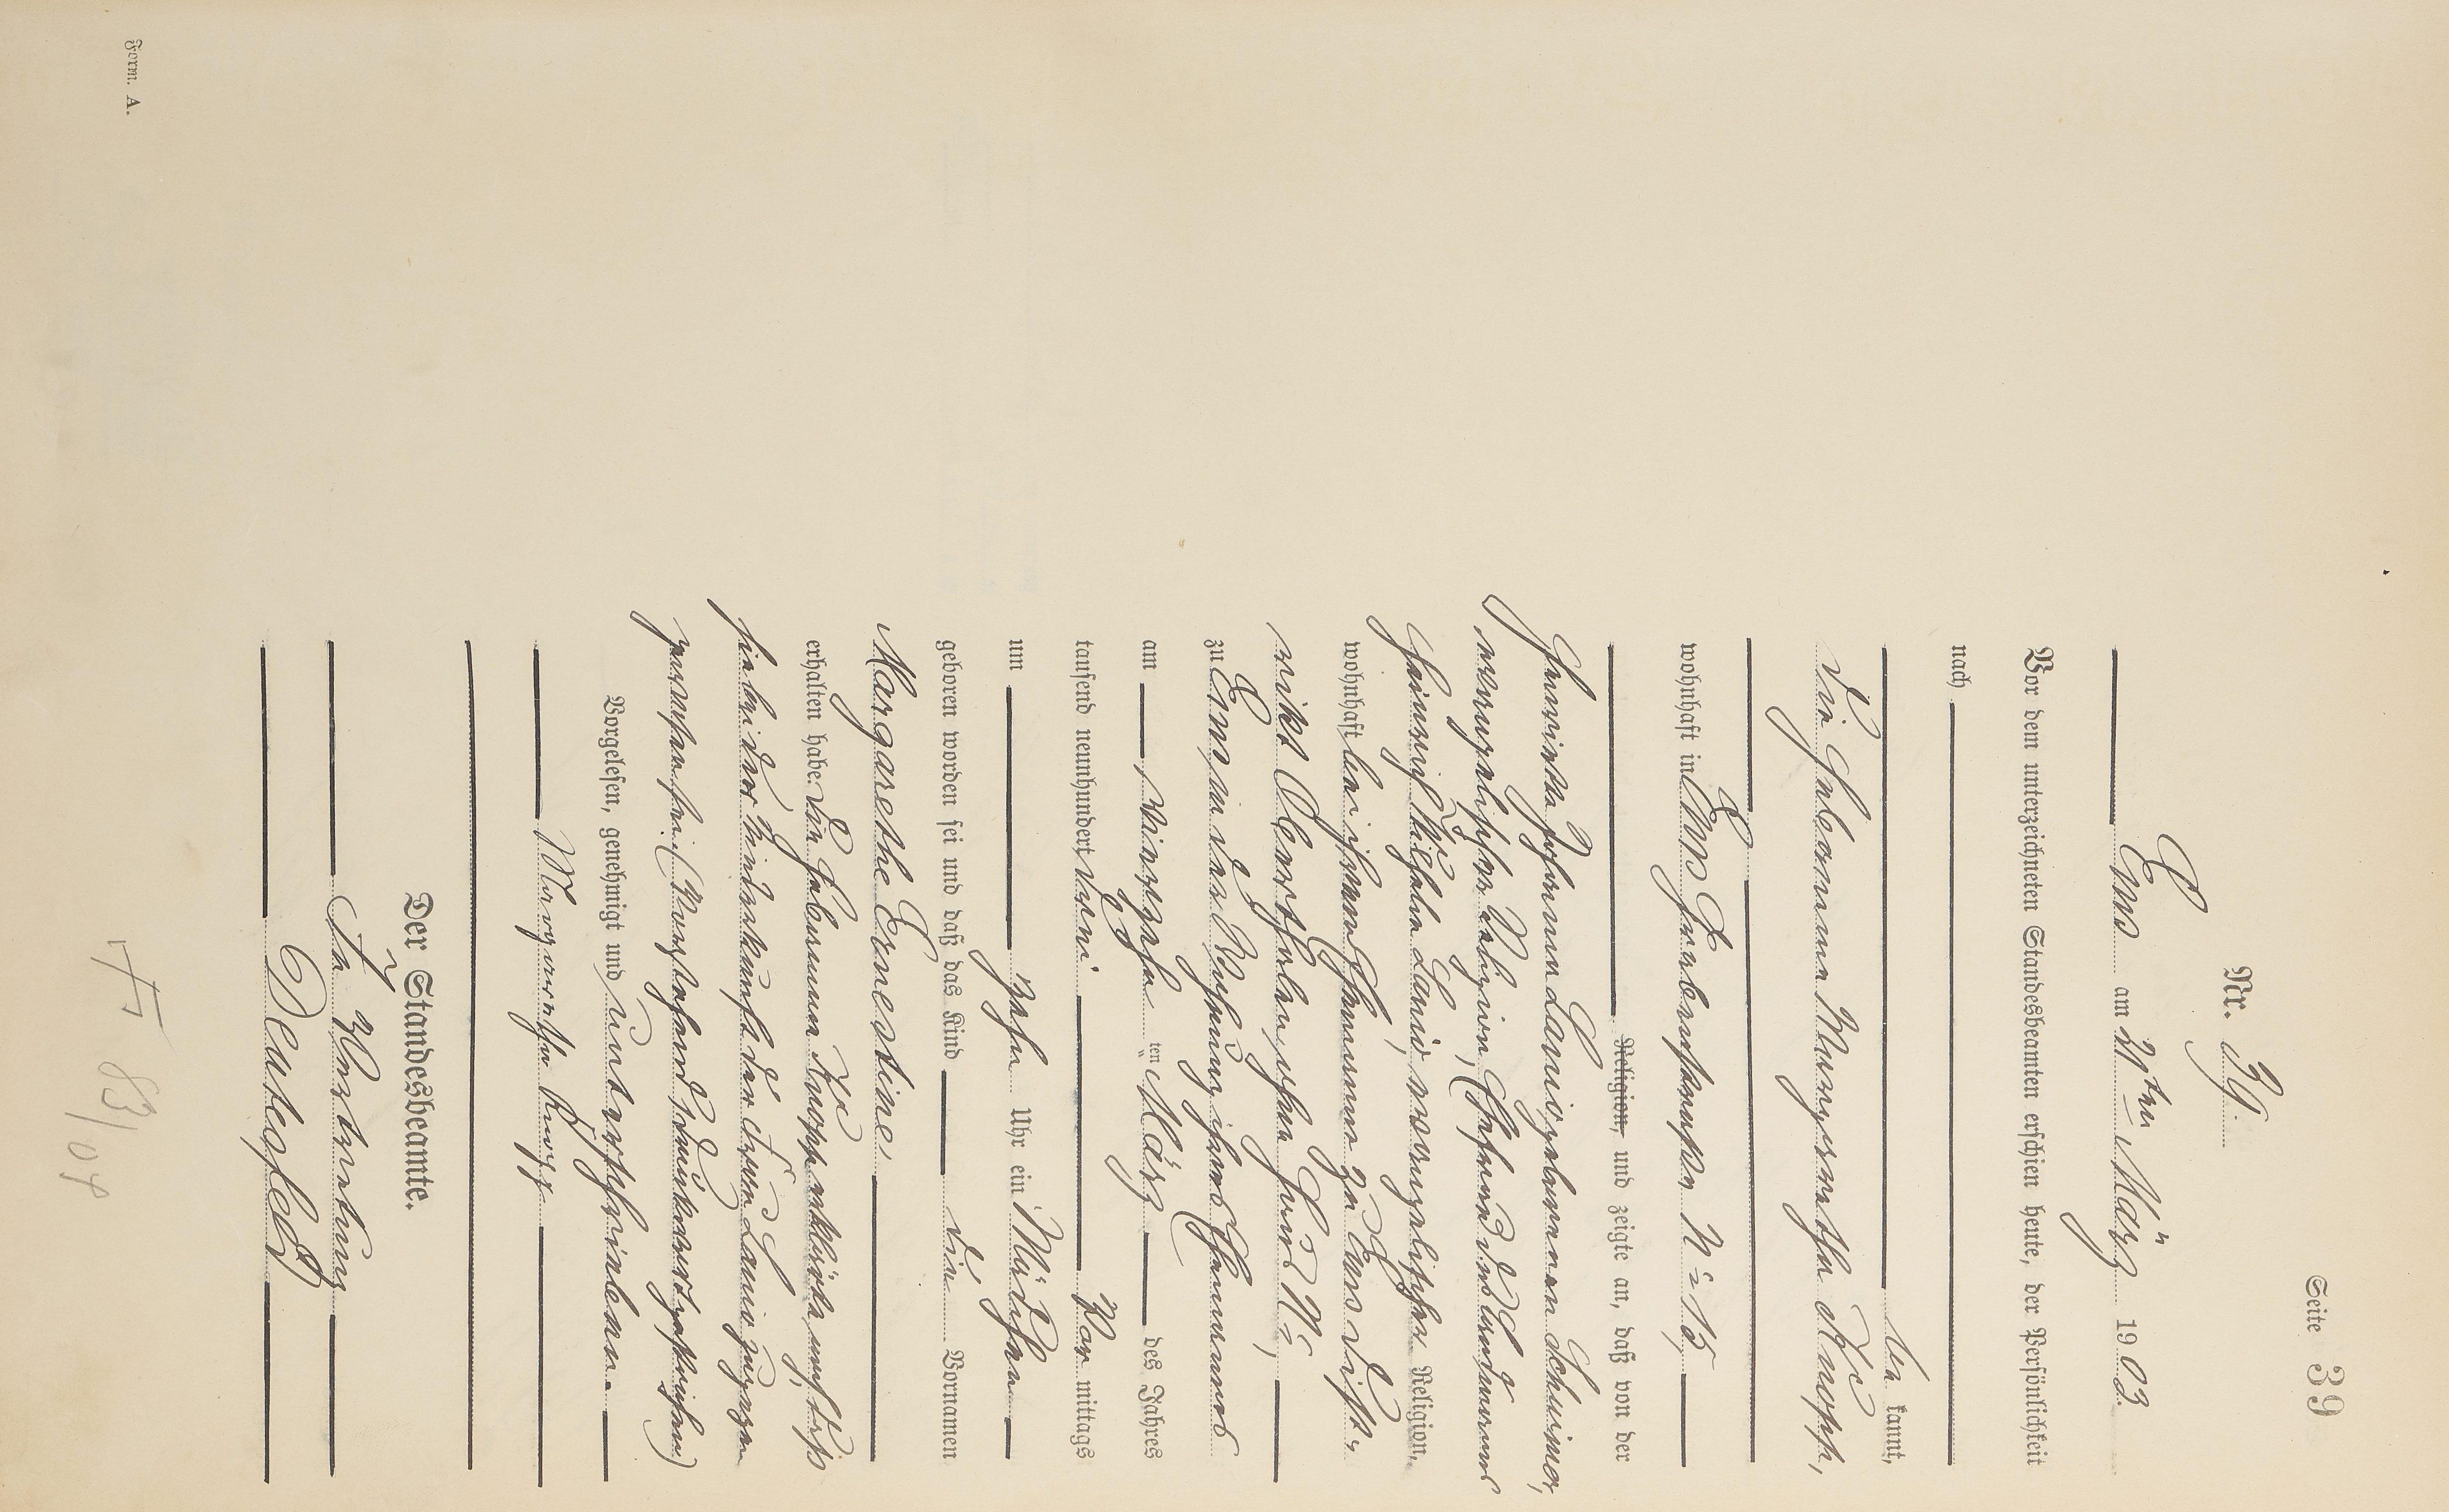 Seite 39
Nr. 39.
Ems am 21ten März 1903.
Vor dem unterzeichneten Standesbeamten erschien heute, der Persönlichkeit
nach
be kannt,
die Hebamme Margaretha Knopp,
wohnhaft in Ems Grabenstraße No 15,
Religion, und zeigte an, daß von der
Henriette Johanna Lanio geborenen Schupp,
evangelischer Religion, Ehefrau des
Heinrich Wilhelm Lanio, evangelischer Religion,
wohnhaft bei ihrem Ehemanne zu Ems
Oberhofen, ohne Haus No,
zu Ems, in der Wohnung ihres Ehemannes
am vierzehnten März des Jahres
tausend neunhundert drei Vor mittags
um zehn Uhr ein Mädchen
geboren worden sei und daß das Kind die Vornamen
Margarethe Ernestine
erhalten habe. Die Hebamme Knopp erklärte noch, daß
sie bei der Niederkunft der Frau Lanio zugegen
gewesen sei. (Vorstehend Druckworte gestrichen)
Vorgelesen, genehmigt und unterschrieben.
Margaretha Knopp
Der Standesbeamte.
In Vertretung
83/04
Form. A.